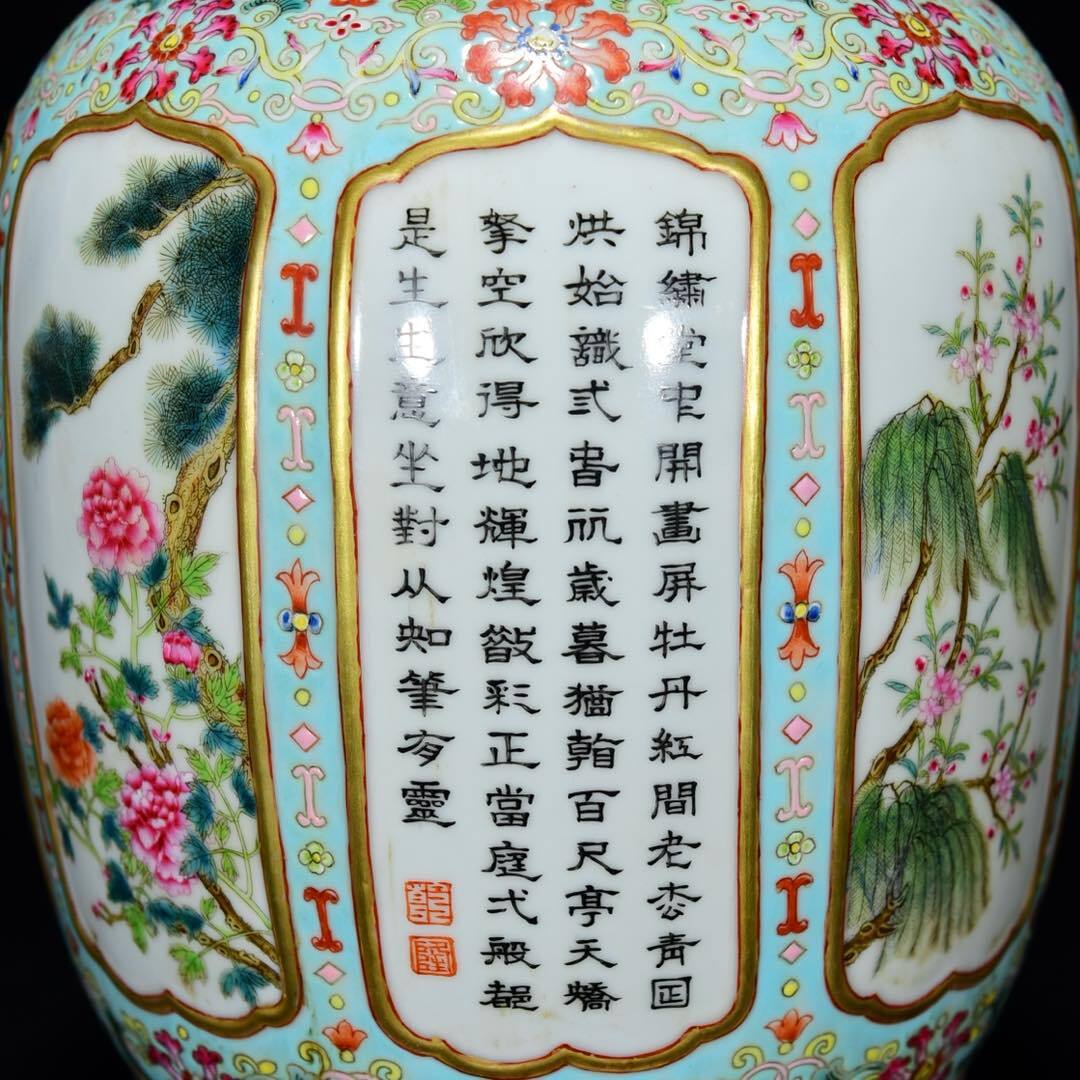 錦繡堂中開畫屏牡丹紅間老枩青囸
烘始識弎旾丽歲暮猶看百尺亭夭矯
拏空欣得地輝煌散彩正當庭弌般都
是生生意坐對从知筆有靈
乾
隆